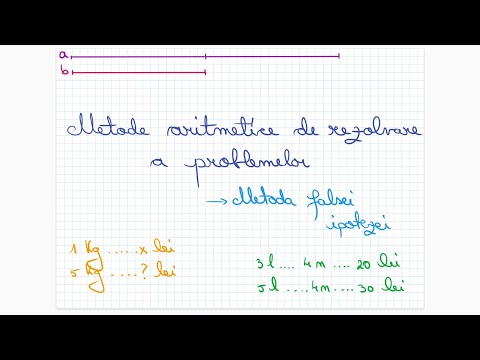 a
b
Metode aritmetice de rezolvare
a problemelor
→ Metoda falsei
ipotezei
1 Kg ..... x lei
5 Kg .... ? lei
3 l .... 4 m .... 20 lei
5 l .... 4m .... 30 lei